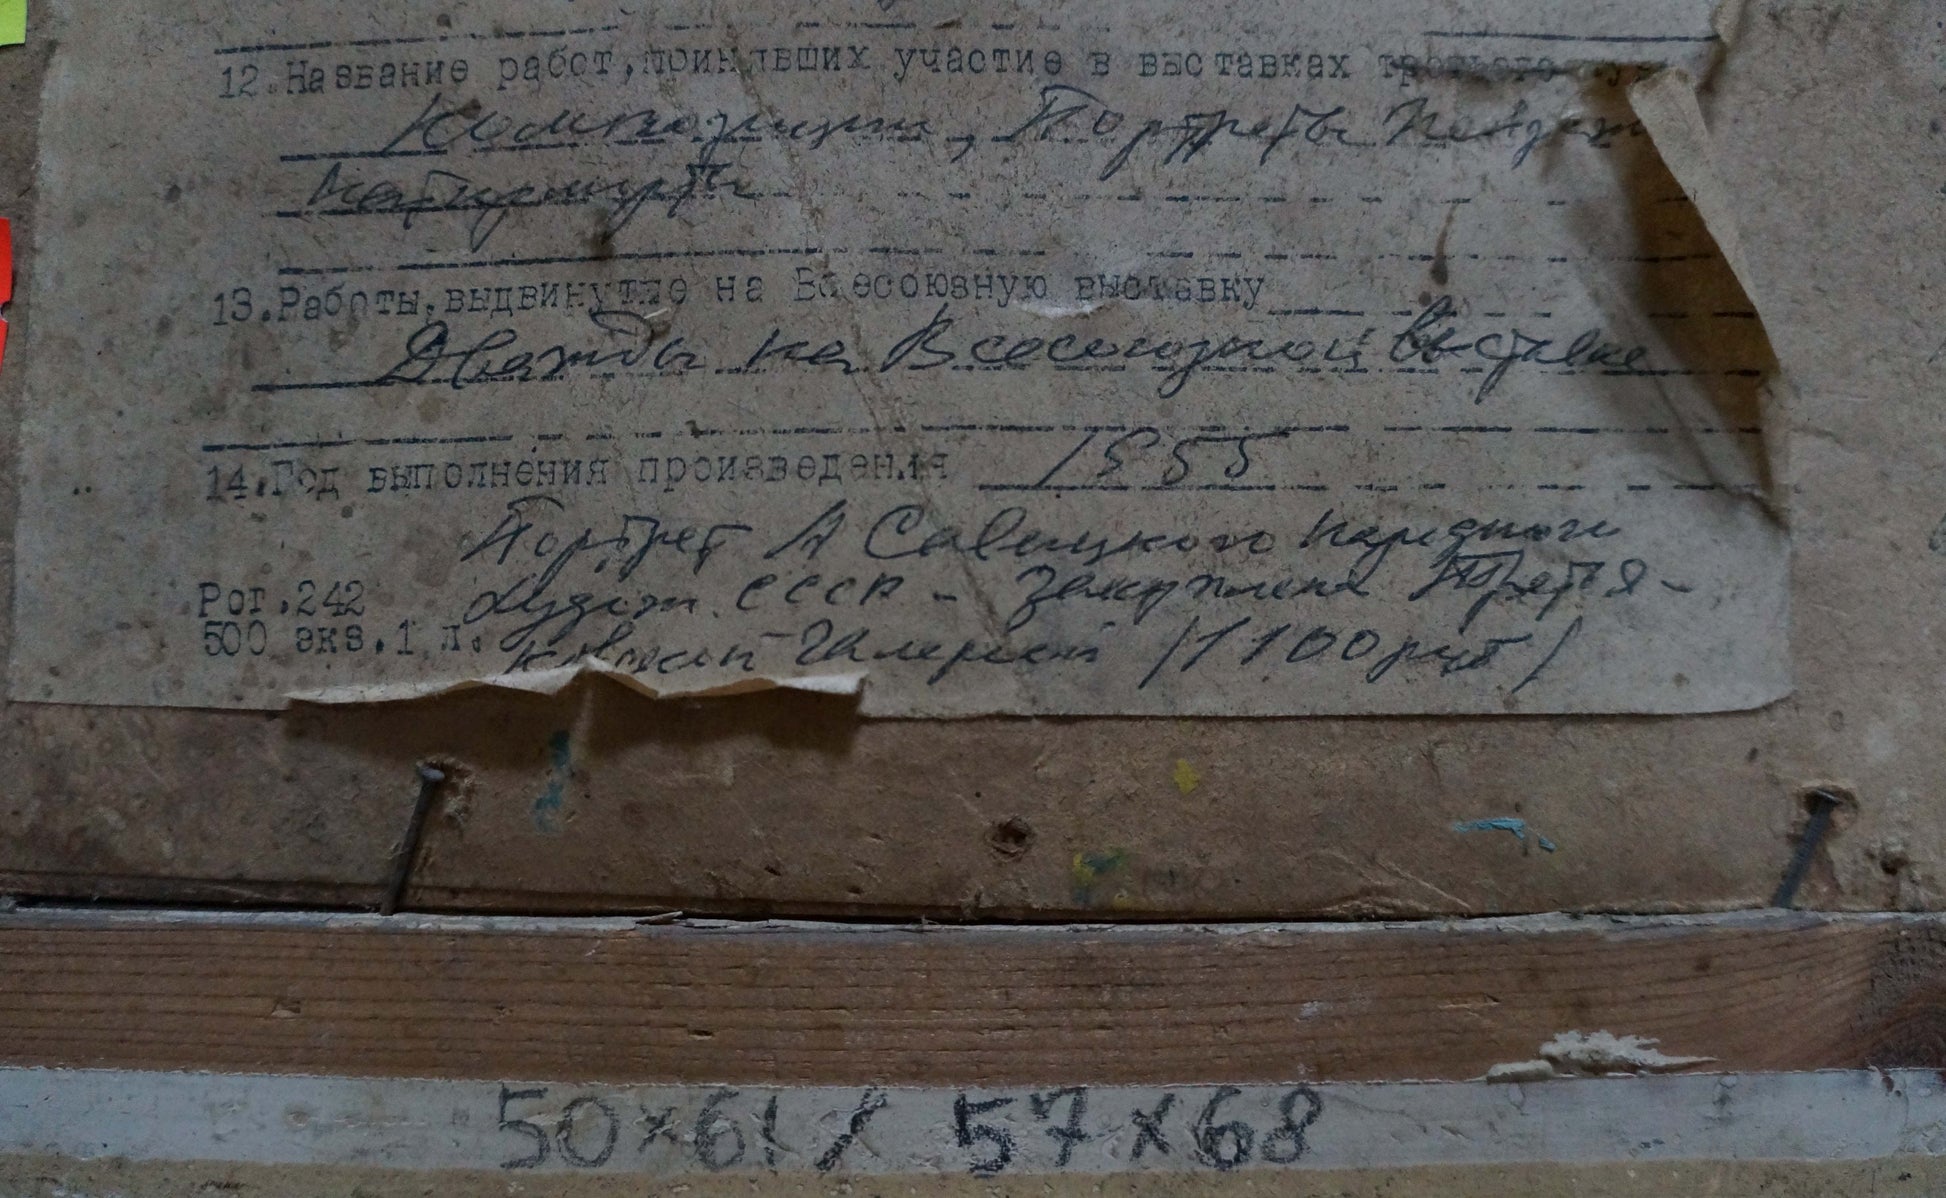 12.Название работ,принявших участие в выставках
Композиции, Портреты Пейзажи
Натюрморты
13.Работы,выдвинутые на Всесоюзную выставку
Дважды на Всесоюзной выставке
14.Год выполнения произведения 1955
Портрет А Савицкого народного
худож. СССР - Закуплена Третья-
Рот.242
500 экз.1 л. ковской Галереей /1100 руб/
50×61/ 57×68